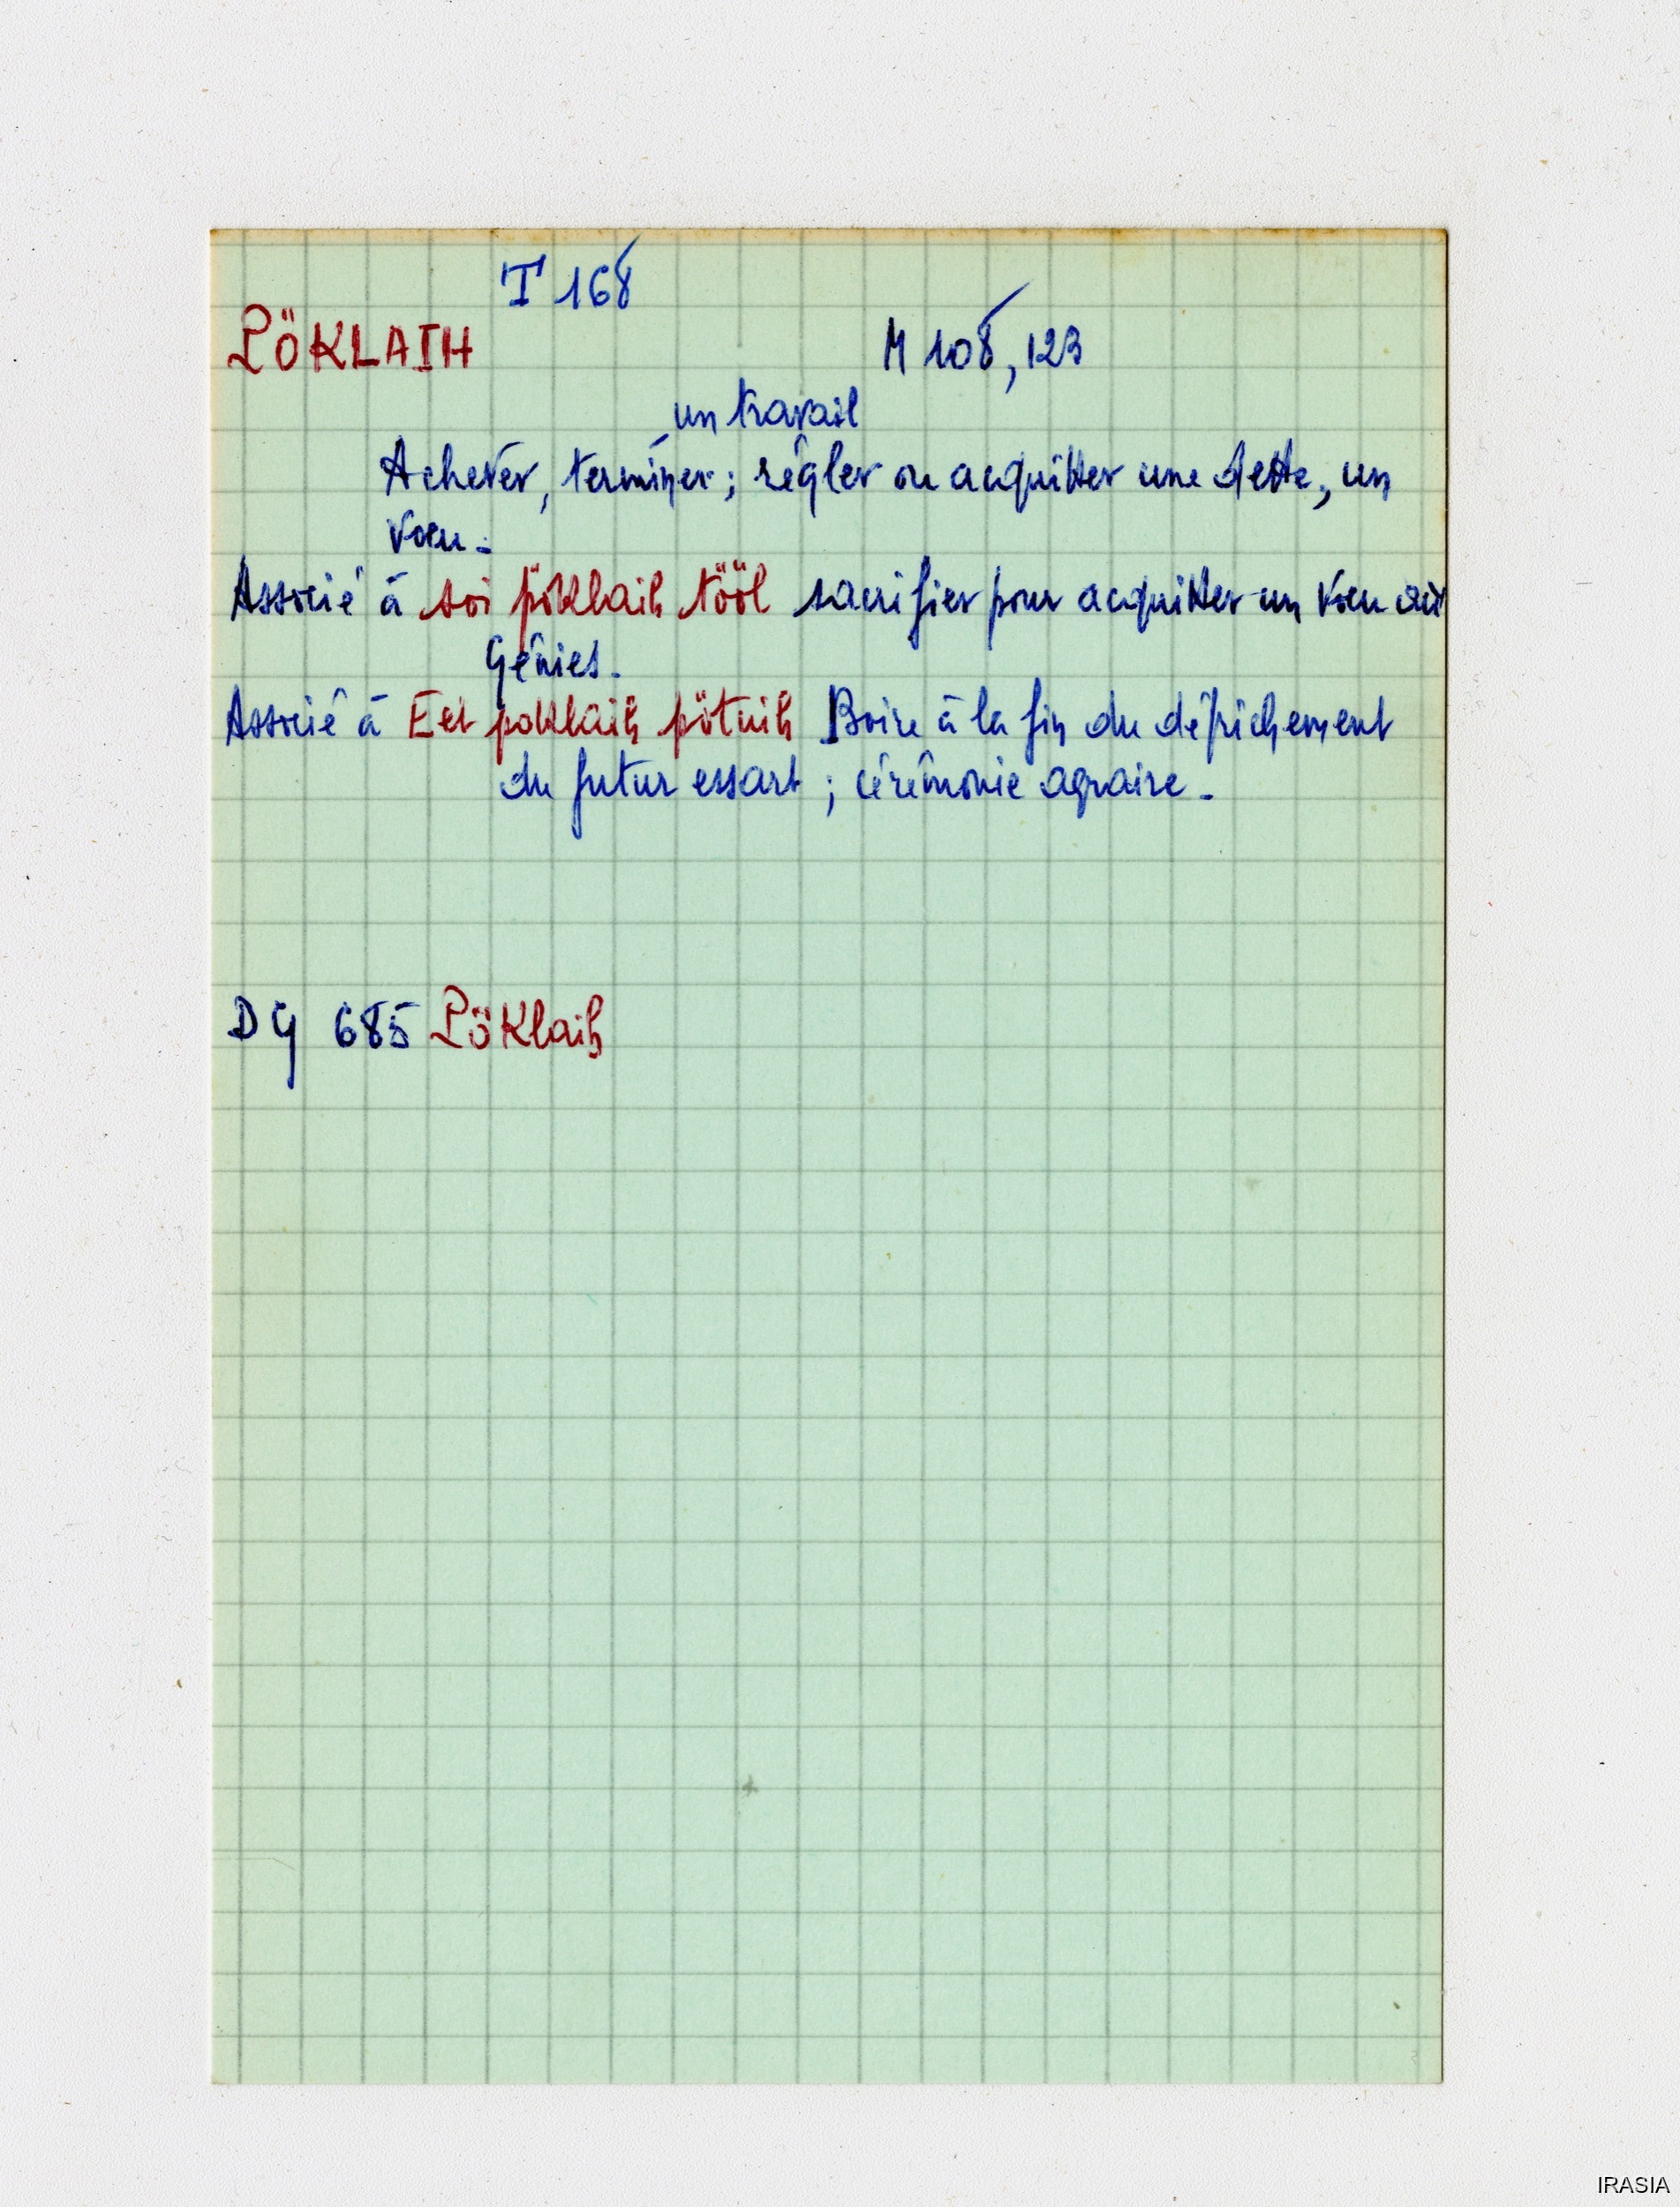 T 168
PÖKLAIH M 108, 123
un travail
Achever, terminer ; régler ou acquitter une dette, un
voeu.
Associé à soi pöklaih tööl sacrifier pour acquitter un voeu aux
Génies.
Associé à Eet poklaih pötuih Boire à la fin du défrichement
du futur essart ; cérémonie agraire.
DG 685 Pöklaih
IRASIA